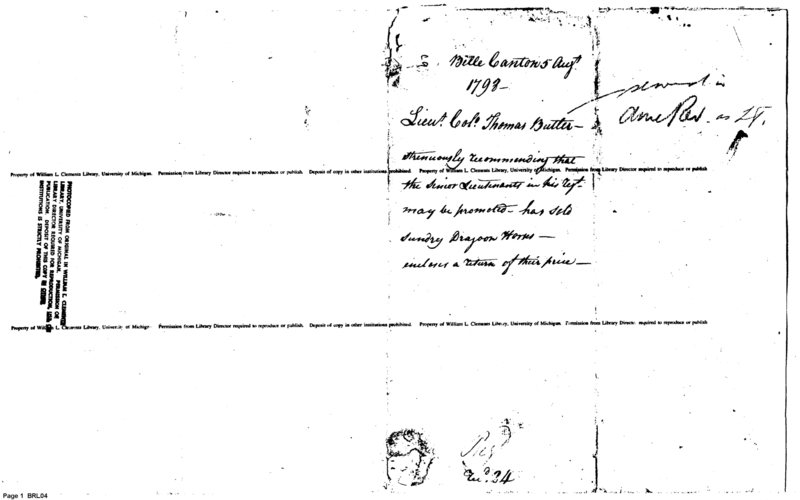 Bille Canton 5 Augt
1793 –
Lieut. Colo. Thomas Butler –
strenuously recommending that
the Senior Lieutenants in his Regt.
may be promoted – has sold
sundry Dragoon Horses –
encloses a return of their price –
served in
Ame Rev. as Lt.
Property of William L. Clements Library, University of Michigan. Permission from Library Director required to reproduce or publish. Deposit of copy in other institutions prohibited. Property of William L. Clements Library, University of Michigan. Permission from Library Director required to reproduce or publish
PHOTOCOPIED FROM ORIGINAL IN WILLIAM L. CLEMENTS
LIBRARY, UNIVERSITY OF MICHIGAN. PERMISSION OF
LIBRARY DIRECTOR REQUIRED FOR REPRODUCTION, USE OR
PUBLICATION. DEPOSIT OF THIS COPY IN OTHER
INSTITUTIONS IS STRICTLY PROHIBITED.
Property of William L. Clements Library, University of Michigan. Permission from Library Director required to reproduce or publish. Deposit of copy in other institutions prohibited. Property of William L. Clements Library, University of Michigan. Permission from Library Director required to reproduce or publish
24
Page 1 BRL04